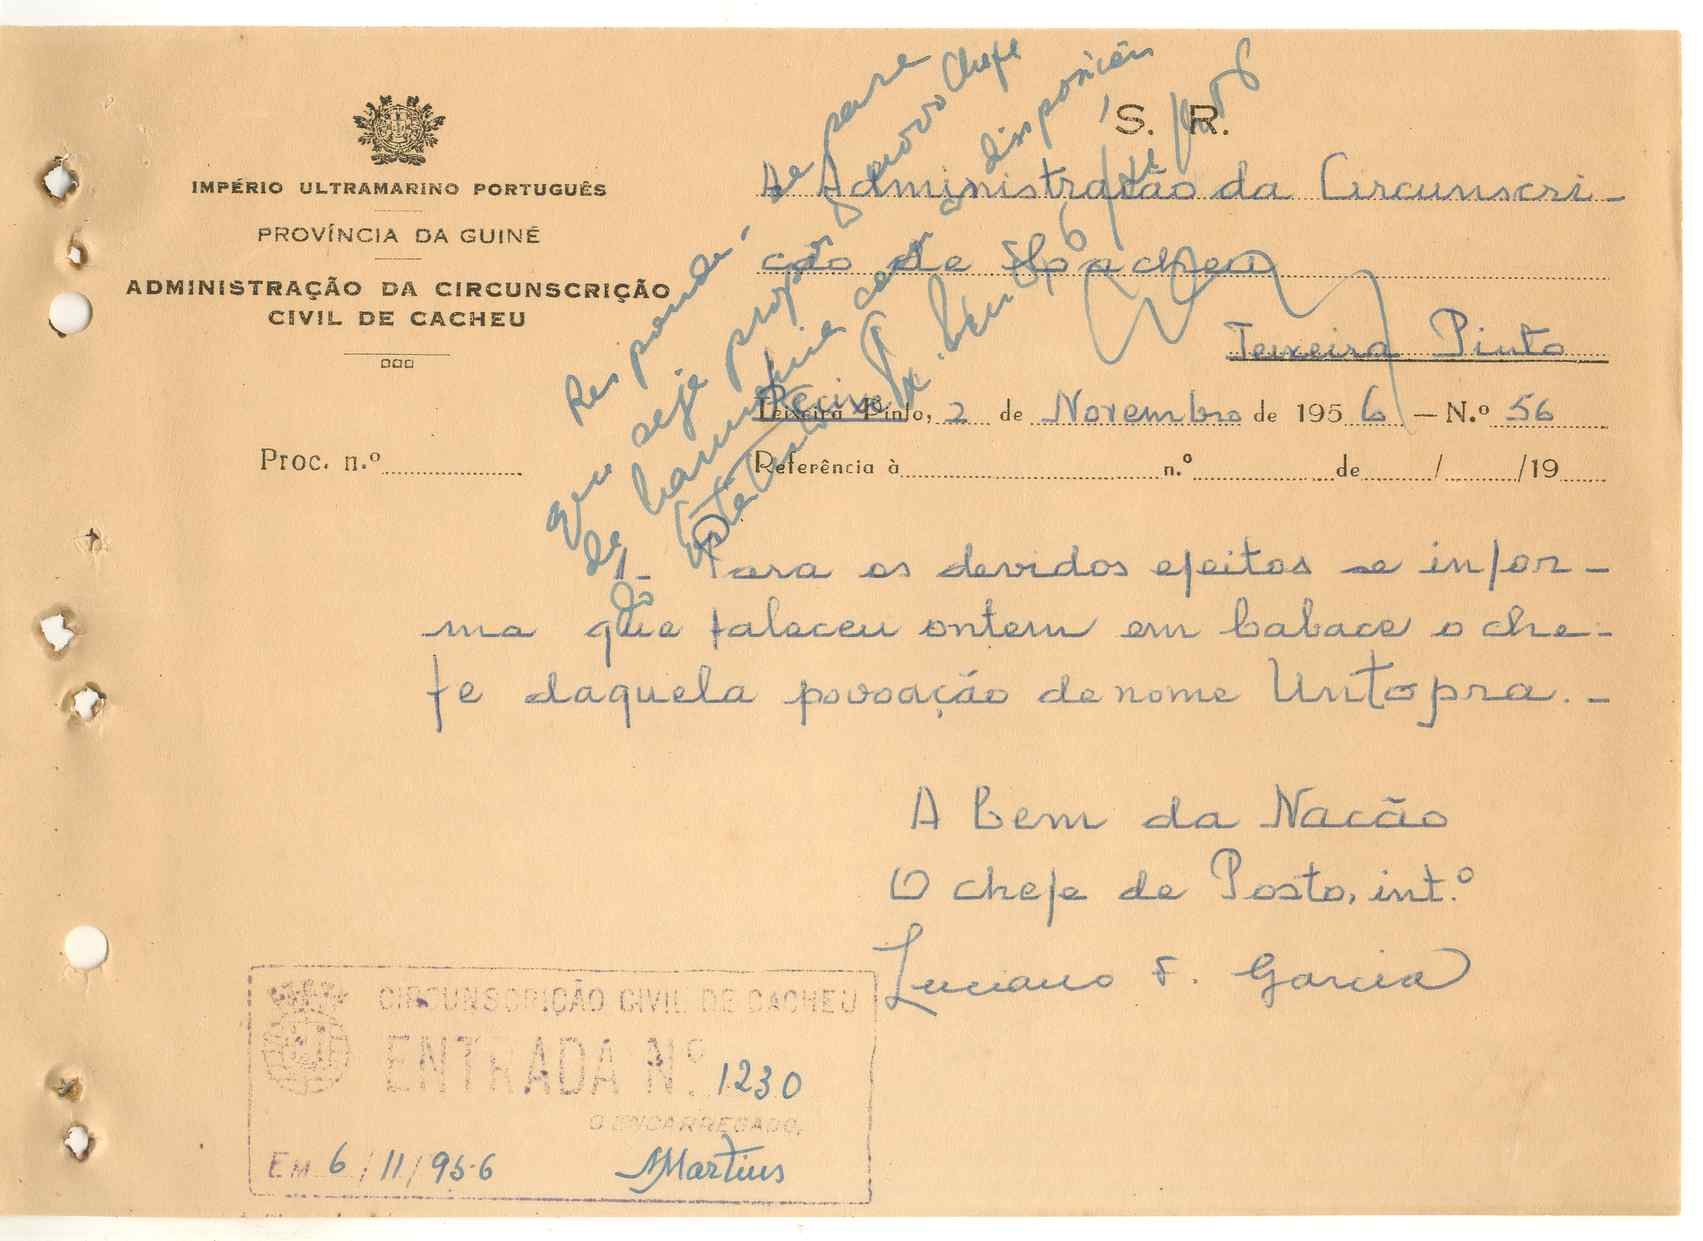 IMPÉRIO ULTRAMARINO PORTUGUÊS
PROVÍNCIA DA GUINÉ
ADMINISTRAÇÃO DA CIRCUNSCRIÇÃO
CIVIL DE CACHEU
Proc. n.º
S. R.
À Administração da Circunscri-
ção de Cacheu
Teixeira Pinto
Teixeira Pinto, 2 de Novembro de 1956 — N.º 56
Referência à n.º de / /19
Responda-se para
que seja proposto novo Chefe
de harmonia com a disposição
1- Para os devidos efeitos se infor-
ma que faleceu ontem em Cabace o che-
fe daquela povoação de nome Untopra.-
A bem da Nação
O chefe de Posto, int.º
Luciano F. Garcia
CIRCUNSCRIÇÃO CIVIL DE CACHEU
ENTRADA N.º 1230
O ENCARREGADO,
EM 6/11/956 Martins